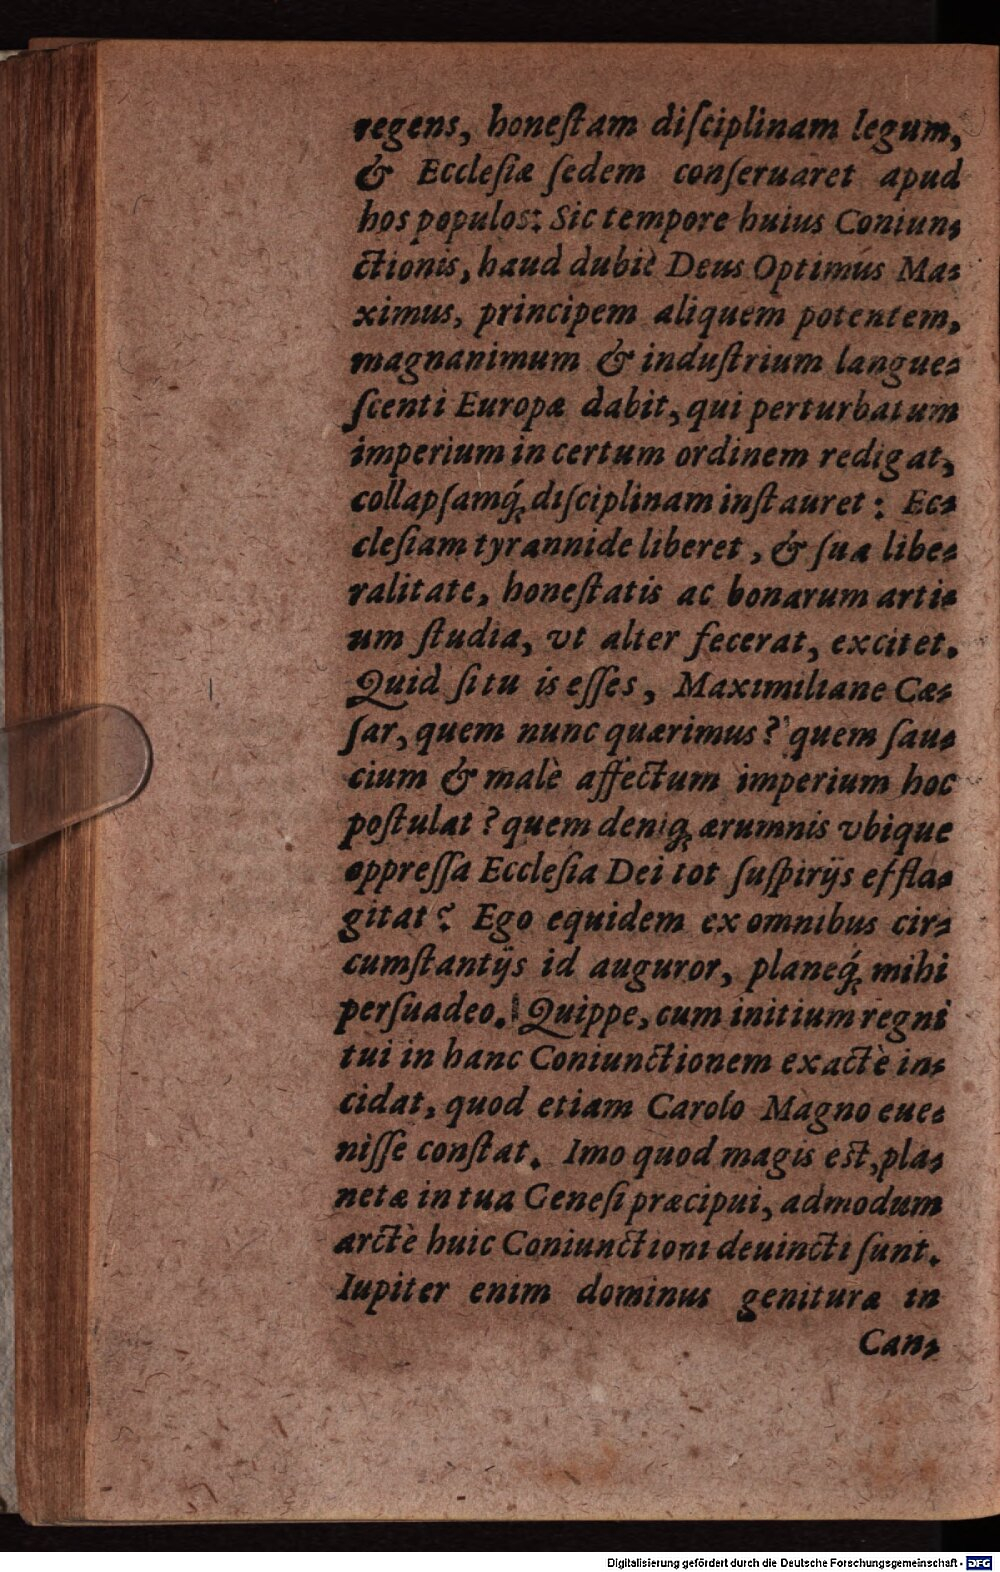 regens, honeſtam diſciplinam legum,
& Eccleſiæ ſedem conſeruaret apud
hos populos: Sic tempore huius Coniun⸗
ctionis, haud dubiè Deus Optimus Ma⸗
ximus, principem aliquem potentem,
magnanimum & induſtrium langue⸗
ſcenti Europæ dabit, qui perturbatum
imperium in certum ordinem redigat,
collapſamq́; diſciplinam inſtauret: Ec⸗
cleſiam tyrannide liberet, & ſua libe⸗
ralitate, honeſtatis ac bonarum arti⸗
um ſtudia, vt alter fecerat, excitet.
Quid ſi tu is eſſes, Maximiliane Cæ⸗
ſar, quem nunc quærimus? quem ſau⸗
cium & malè affectum imperium hoc
poſtulat? quem deniq; ærumnis vbique
oppreſſa Eccleſia Dei tot ſuſpirijs effla⸗
gitat? Ego equidem ex omnibus cir⸗
cumſtantijs id auguror, planeq́; mihi
perſuadeo. Quippe, cum initium regni
tui in hanc Coniunctionem exactè in⸗
cidat, quod etiam Carolo Magno eue⸗
niſſe conſtat. Imo quod magis eſt, pla⸗
netæ in tua Geneſi præcipui, admodum
arctè huic Coniunctioni deuincti ſunt.
Iupiter enim dominus genituræ in
Can⸗
Digitalisierung gefördert durch die Deutsche Forschungsgemeinschaft - DFG